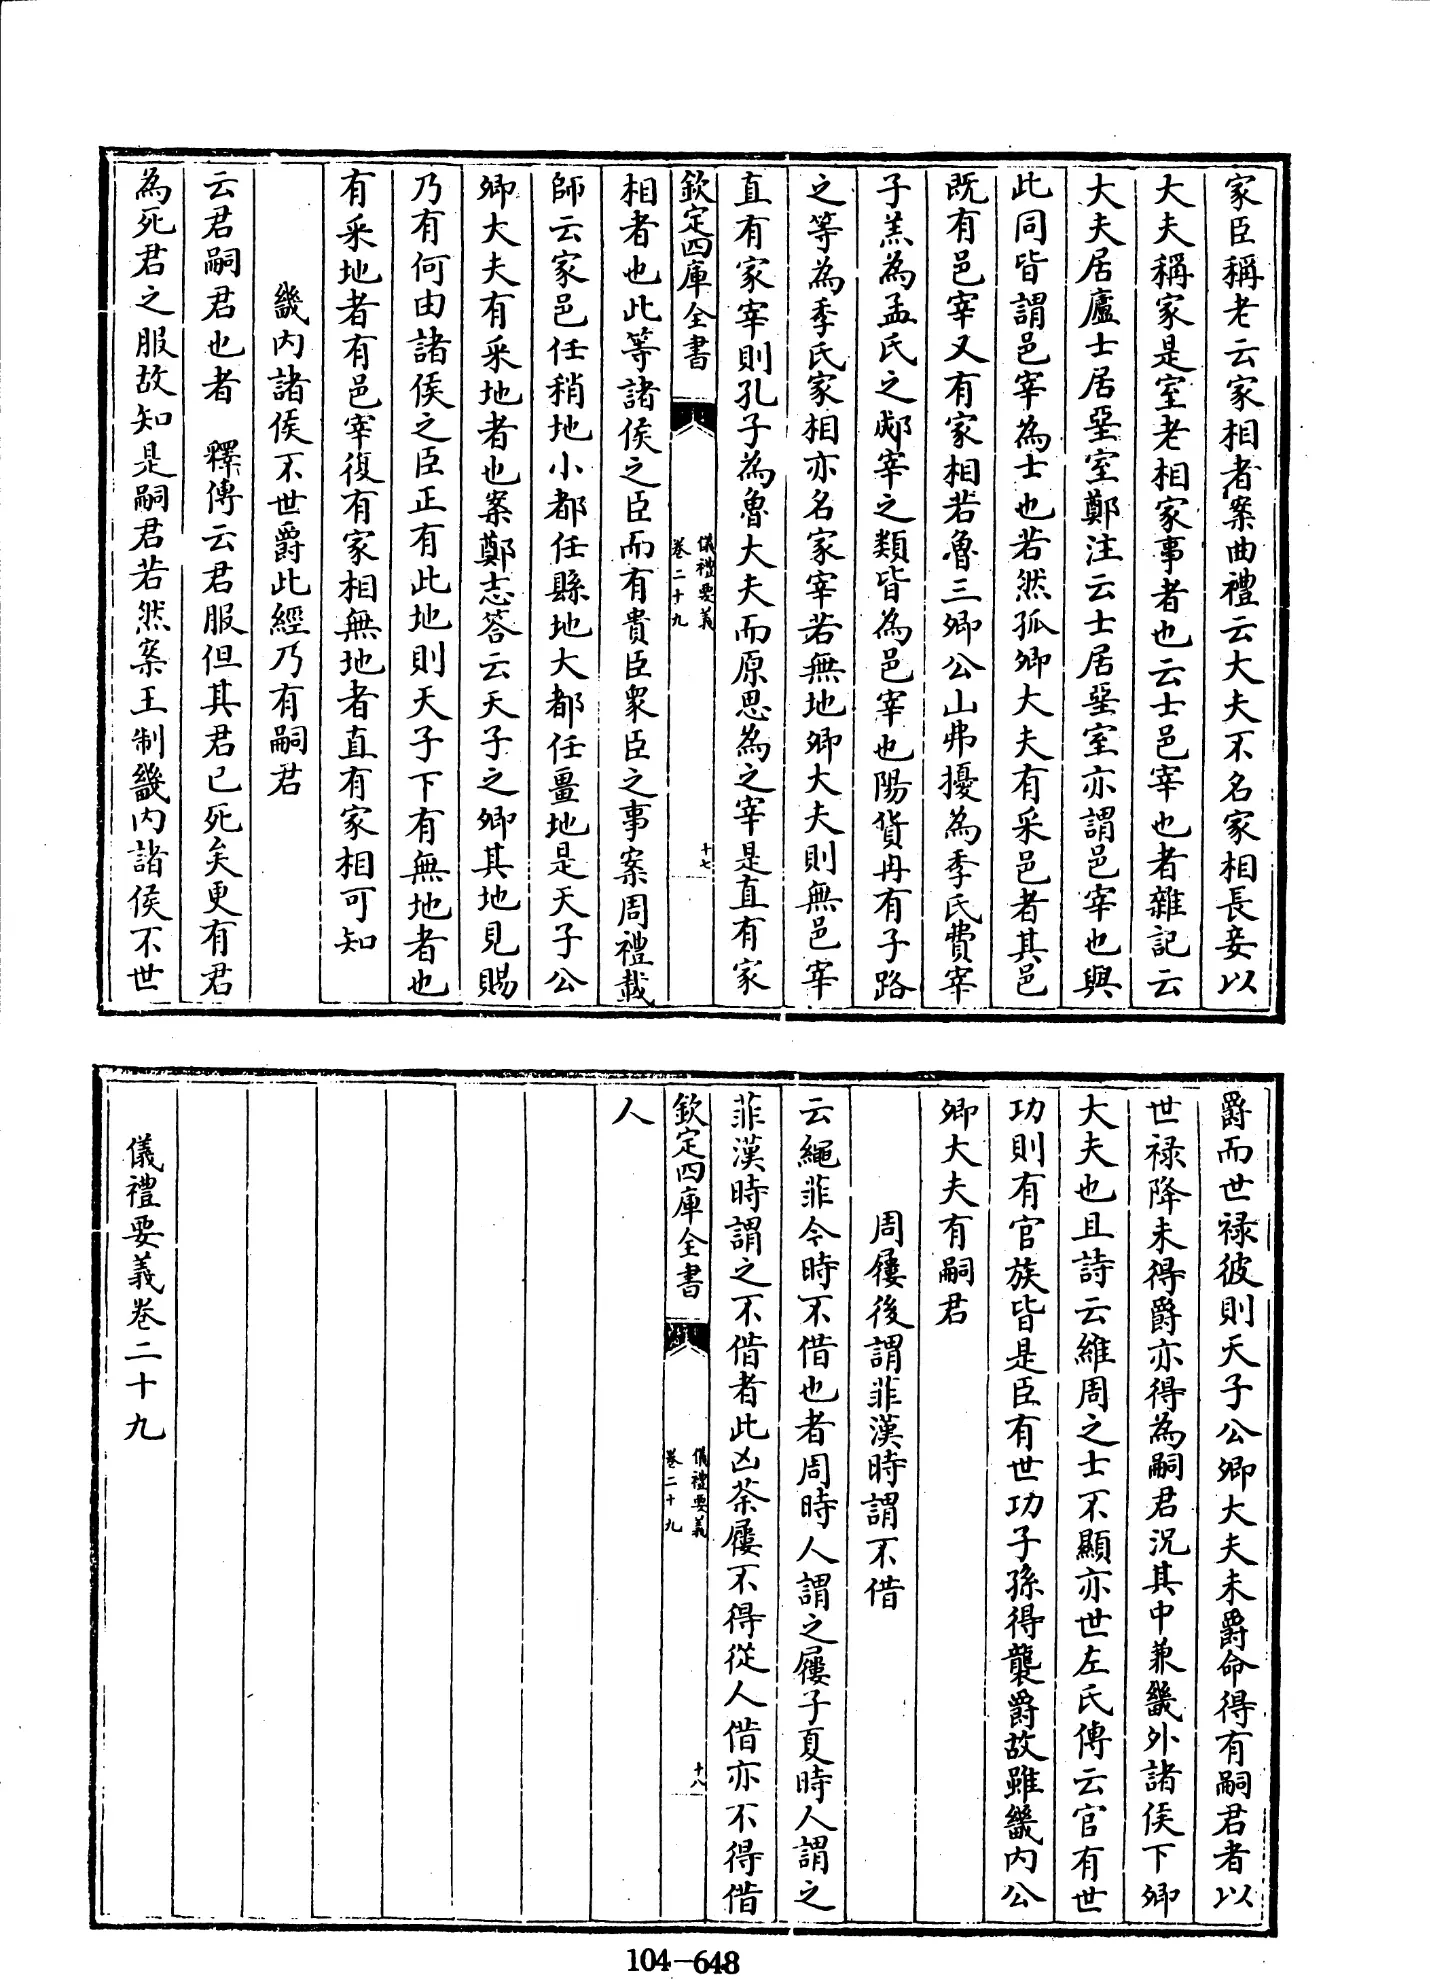 家臣稱老云家相者案曲禮云大夫不名家相長妾以
大夫稱家是室老相家事者也云士邑宰也者雜記云
大夫居廬士居堊室鄭注云士居堊室亦謂邑宰也與
此同皆謂邑宰為士也若然孤卿大夫有采邑者其邑
既有邑宰又有家相若魯三卿公山弗擾為季氏費宰
子羔為孟氏之郕宰之類皆為邑宰也陽貨冉有子路
之等為季氏家相亦名家宰若無地卿大夫則無邑宰
直有家宰則孔子為魯大夫而原思為之宰是直有家
欽定四庫全書
儀禮要義
卷二十九
十七
相者也此等諸侯之臣而有貴臣衆臣之事案周禮載
師云家邑任稍地小都任縣地大都任畺地是天子公
卿大夫有采地者也案鄭志答云天子之卿其地見賜
乃有何由諸侯之臣正有此地則天子下有無地者也
有采地者有邑宰復有家相無地者直有家相可知
畿内諸侯不世爵此經乃有嗣君
云君嗣君也者 釋傳云君服但其君已死矣更有君
為死君之服故知是嗣君若然案王制畿内諸侯不世
爵而世禄彼則天子公卿大夫未爵命得有嗣君者以
世禄降未得爵亦得為嗣君況其中兼畿外諸侯下卿
大夫也且詩云維周之士不顯亦世左氏傳云官有世
功則有官族皆是臣有世功子孫得襲爵故雖畿内公
卿大夫有嗣君
周屨後謂菲漢時謂不借
云繩菲今時不借也者周時人謂之屨子夏時人謂之
菲漢時謂之不借者此凶荼屨不得從人借亦不得借
欽定四庫全書
儀禮要義
卷二十九
十八
人
儀禮要義卷二十九
104-648